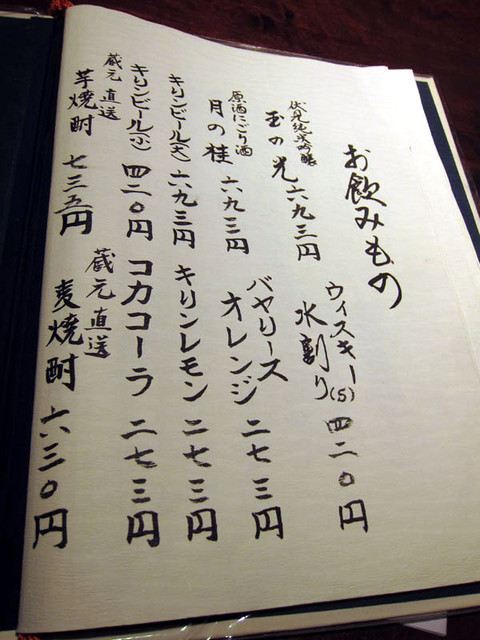 お飲みもの
伏見純米吟醸
玉の光 六九三円
原酒にごり酒
月の桂 六九三円
キリンビール(大) 六九三円
キリンビール(小) 四二〇円
蔵元直送
芋焼酎 七三五円
ウィスキー(S)
水割り 四二〇円
バヤリース
オレンジ 二七三円
キリンレモン 二七三円
コカコーラ 二七三円
蔵元直送
麦焼酎 六三〇円